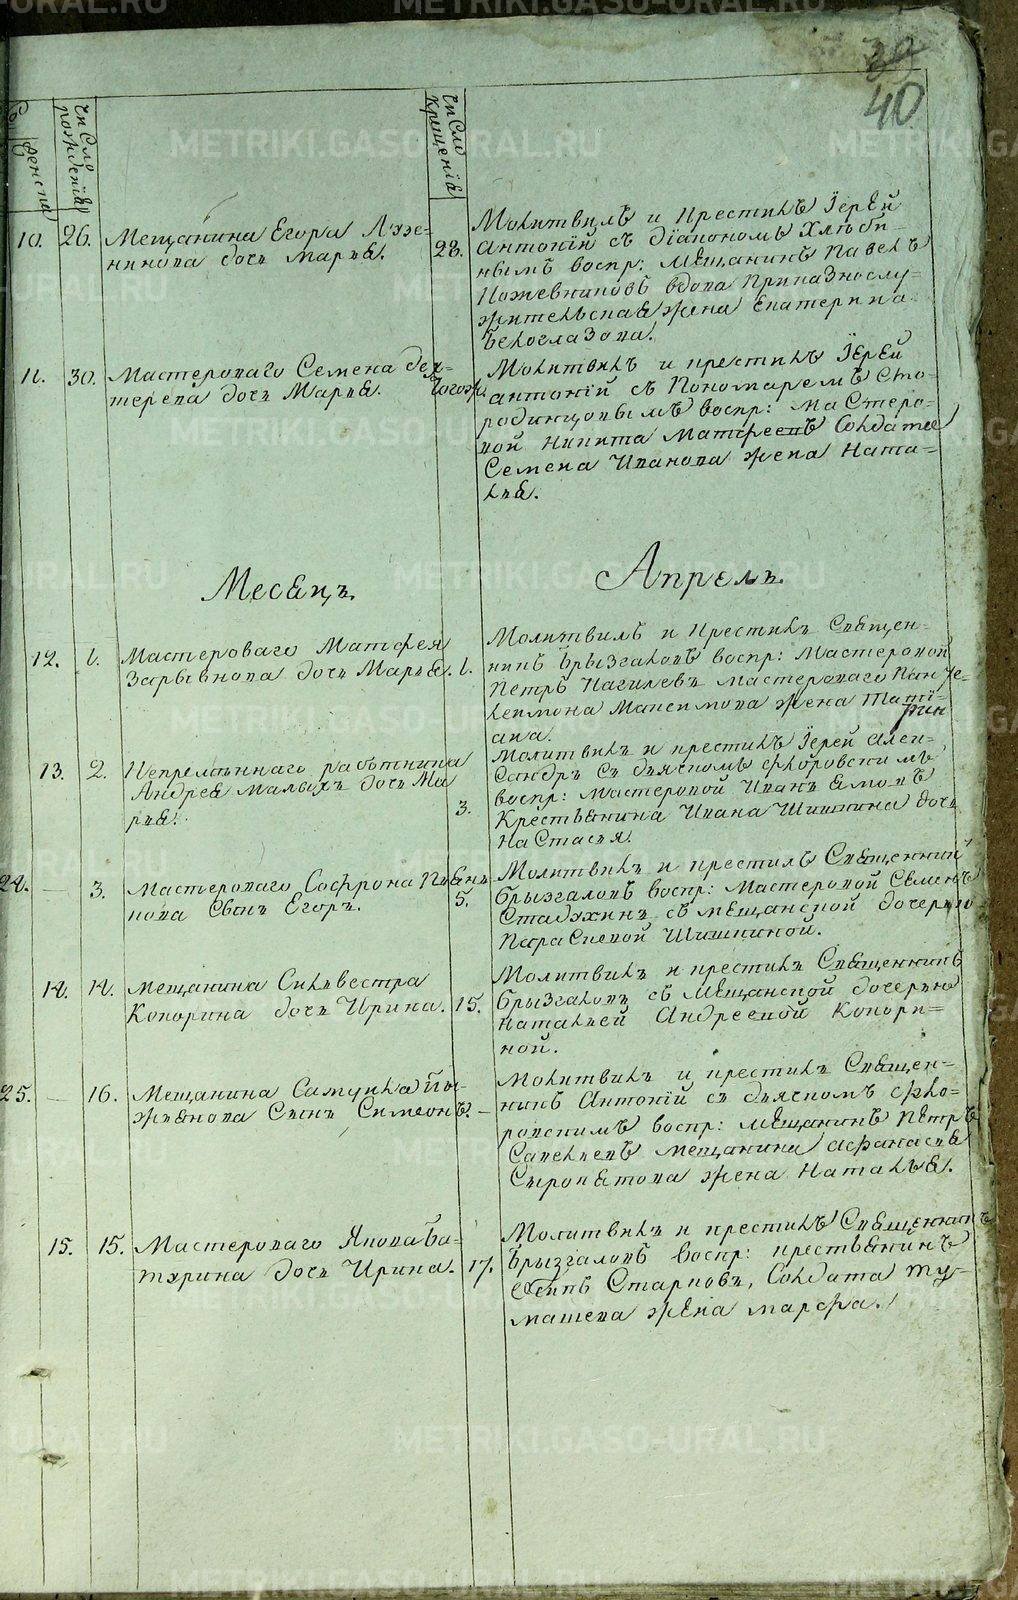 39
40
Женска
Число рожденія
Число Крещенія
10. 26. Мещанина Егора Луже-
никова дочь Марья.
28.
Молитвилъ и Крестилъ Іерей
Антоній съ діакономъ Хлѣби-
нымъ воспр: Мещанинъ Павелъ
Кожевниковъ вдова Приказнослу-
жительская жена Екатерина
Бѣлоглазова.
11. 30. Мастероваго Семена Дех-
терева дочь Марья.
тогожъ.
Молитвилъ и крестилъ Іерей
Антоній съ Пономаремъ Сто-
родинцовымъ воспр: Мастеро-
вой Никита Матфеевъ Солдата
Семена Иванова жена Ната-
лья.
Месяцъ Апрель.
12. 1. Мастероваго Матфея
Зарывнова дочь Марья.
1.
Молитвилъ и Крестилъ Священ-
никъ Брызгаловъ воспр: Мастеровой
Петръ Нагилевъ мастероваго Пан
телимона Максимова жена Тать-
яна.
13. 2. Непременнаго работника
Андрея Малыхъ дочь Ма
рья.
3.
Молитвилъ и крестилъ Іерей Алек-
сандръ съ дьячкомъ Флоровскимъ
воспр: Мастеровой Иванъ
Крестьянина Ивана Шишкина дочь
Настасья.
24. — 3. Мастероваго Софрона
нова Сынъ Егоръ.
5.
Молитвилъ и крестилъ Священникъ
Брызгаловъ воспр: Мастеровой Семенъ
Стадухинъ съ мещанской дочерью
Парасковой Шишкиной.
14. 14. Мещанина Сильвестра
Копорина дочь Ирина.
15.
Молитвилъ и крестилъ Священникъ
Брызгаловъ съ Мещанской дочерью
Натальей Андреевой Копори-
ной.
25. — 16. Мещанина Самуила
Сынъ Симеонъ. —
Молитвилъ и крестилъ Священ-
никъ Антоній съ дьячкомъ Фло-
ровскимъ воспр: Мещанинъ Петръ
Савельевъ мещанина Афанасья
Сыропятова жена Наталья.
15. 15. Мастероваго Якова Ба-
турина дочь Ирина.
17.
Молитвилъ и крестилъ Священникъ
Брызгаловъ воспр: крестьянинъ
Старковъ, Солдата Ту-
машева жена Марфа.
METRIKI.GASO-URAL.RU